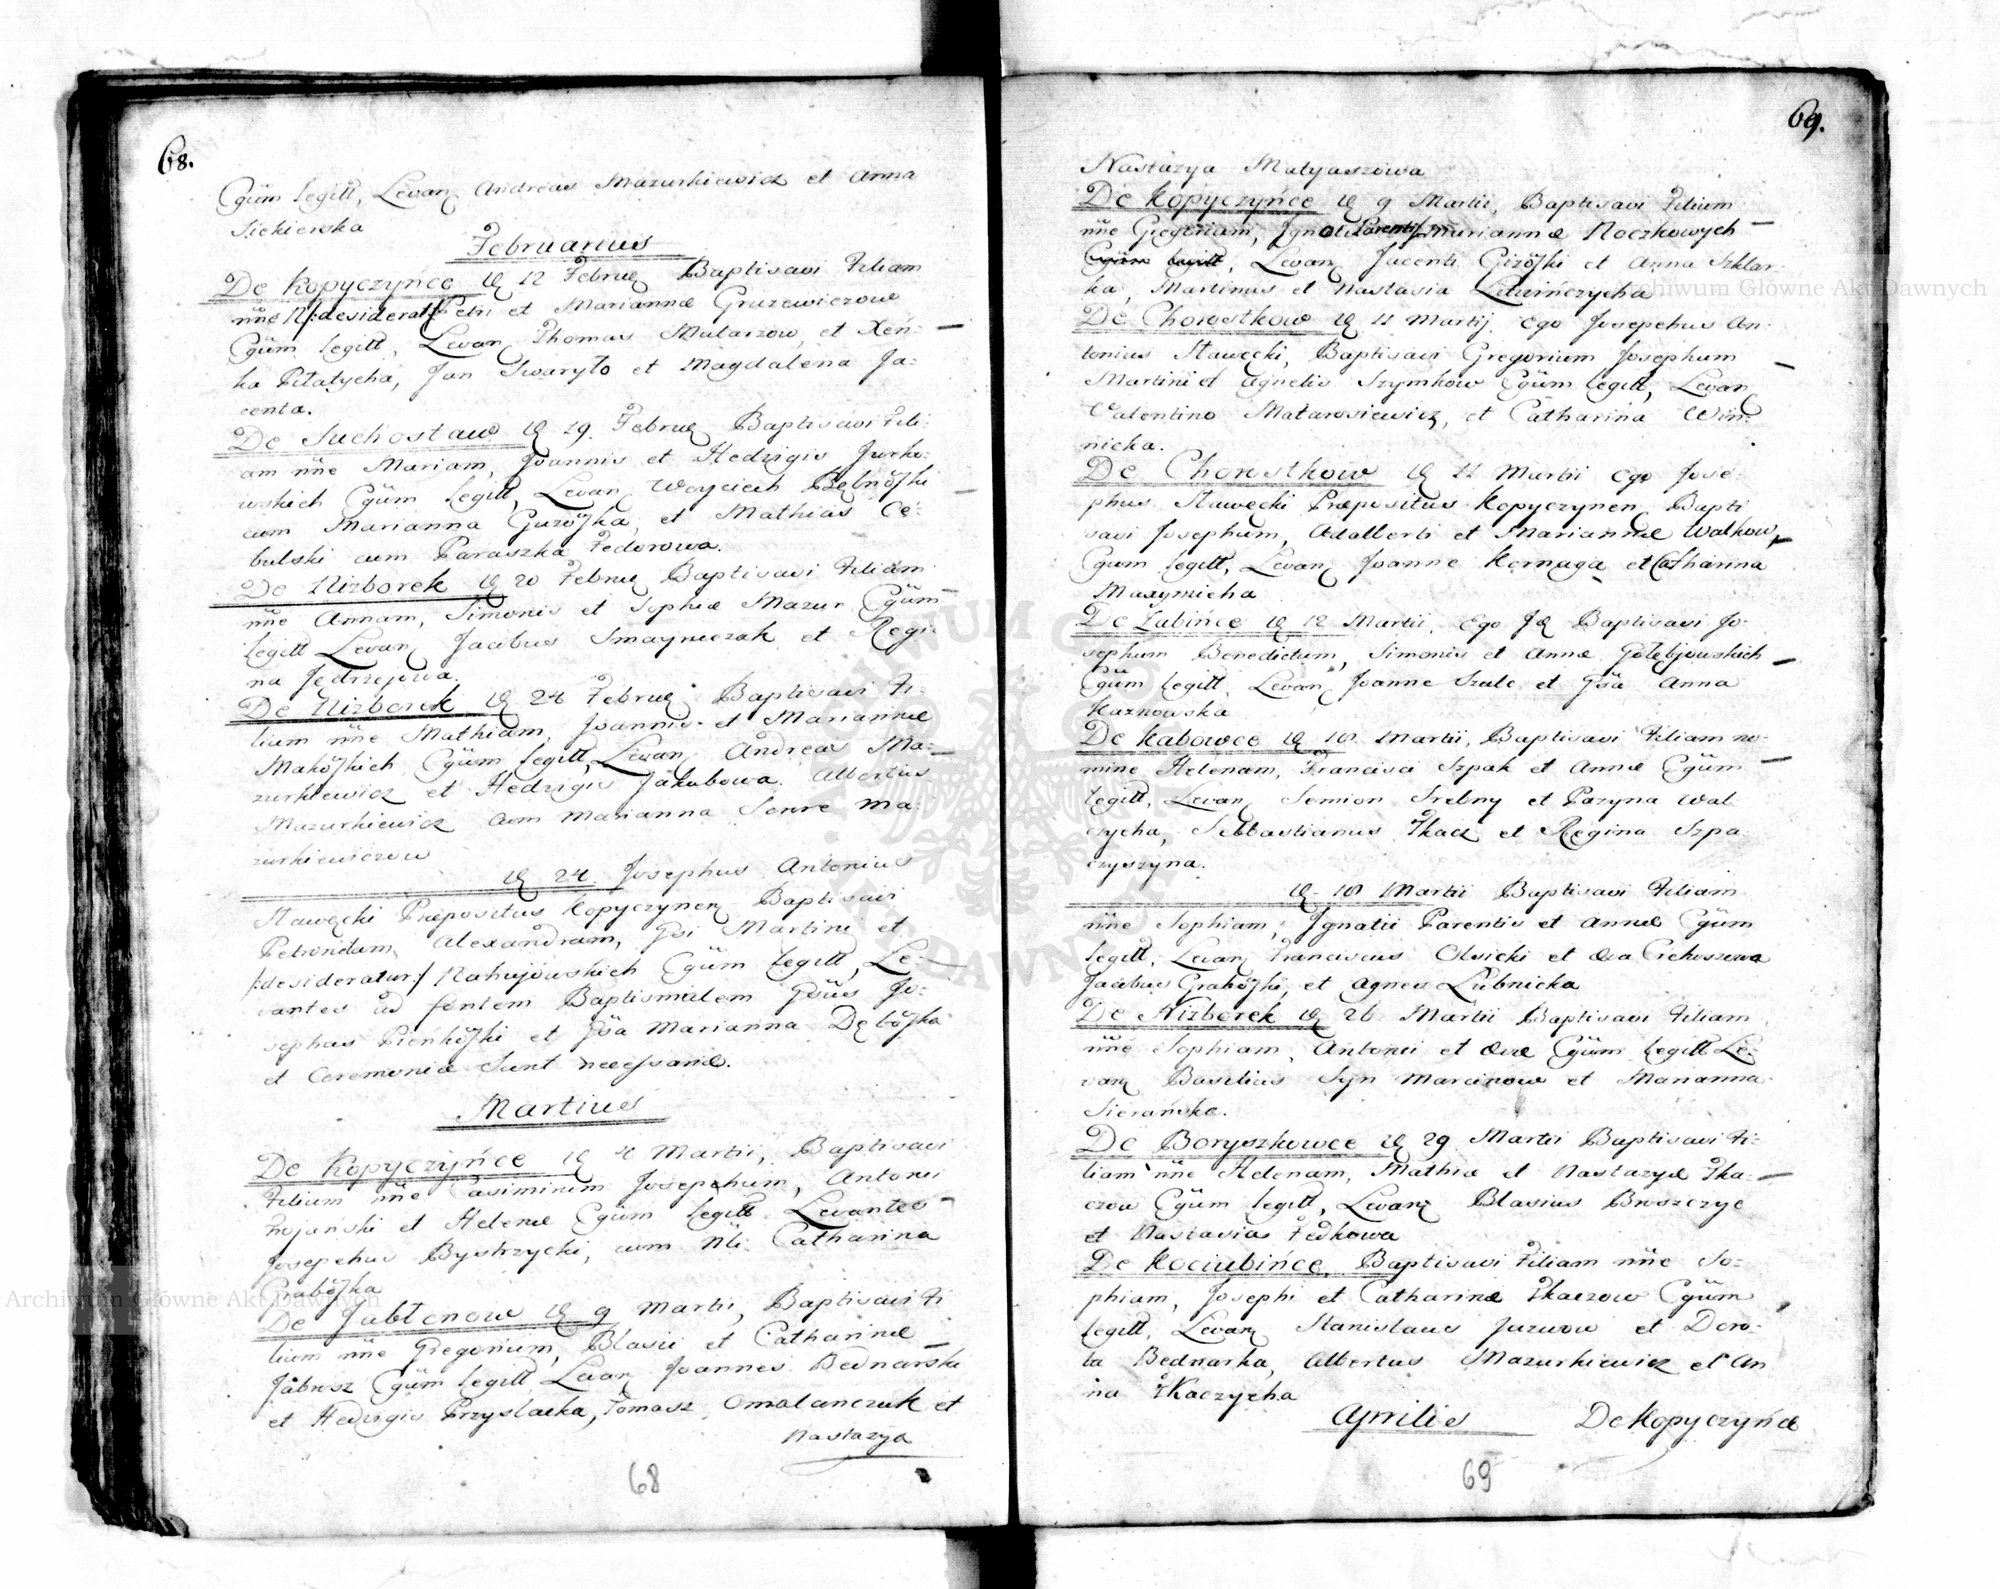 68.
Cgũm legitt, Levan Andreas Mazurkiewicz et Anna
Siekierska
Februarius
De Kopyczyńce 12 Februe Baptisavi Filiam
nñe N/:desideratur/ Petri et Mariannæ Gruzewiczow
Cgũm legitt, Levan Thomas Malarzow, et Xeń-
ka Pilatycha, Jan Twaryło et Magdalena Ja-
centa.
De Suchostaw 19. Februe Baptisavi Fili-
am nñe Mariam, Joannis et Hedzigis Jurko-
wskich Cgũm legitt, Levan Woyciech
cum Marianna et Mathias Ce-
bulski cum Paraszka Fedorowa.
De Nizborek 20 Februe Baptisavi Filiam
nñe Annam, Simonis et Sophiæ Mazur Cgũm
legitt Levan Jacobus Smayniczak et Regi-
na Jędrzejowa.
De Nizborek 24 Februe Baptisavi Fi-
lium nñe Mathiam, Joannis et Mariannæ
Makõskich Cgũm legitt, Levan Andreas Ma-
zurkiewicz et Hedzigis Jakubowa. Albertus
Mazurkiewicz cum Marianna Ma-
zurkiewiczow
24 Josephus Antonius
Stawęcki Præpositus Kopyczynen Baptisavi
Petrondam Alexandram, Gsi Martini et
/:desideratur:/ Nahujowskich Cgũm legitt, Le-
vantes ad fontem Baptismalem Gsus Jo-
sephus Pieńkõski et Gsa Marianna Dębõska
et Ceremoniæ Sunt necessariæ.
Martius
De Kopyczyńce 4 Martii, Baptisavi
Filium nñe Casimirum Josepehum, Antonii
Trojański et Helenæ Cgũm legitt Levantes
Josepehus Bystrzycki, cum Nli Catharina
Grabõska
De Jabłonow 9 Martii, Baptisavi Fi
lium nñe Gregorium, Blasii et Catharinæ
Jabrosz Cgũm legitt Levan Joannes Bednarski
et Hedzigis Przyslacka, Tomasz Omolanczuk et
Nastazya
68
69.
Nastazya Matyaszowa
De Kopyczyńce 9 Martii, Baptisavi Filium
nñe Gregorium, Ignatii Parentis Mariannæ Roczkowych
Cgũm legitt, Levan Jacenti Gizõski et Anna Szklar-
ka, Martinus et Nastasia Litwińczycha
De Chorostkow 11 Martij, Ego Josepehus An-
tonius Stawęcki, Baptisavi Gregorium Josephum
Martini et Agnetis Szymkow Cgũm legitt, Levan
Valentino Matarosiewicz, et Catharina Win-
nicka.
De Chorostkow 11 Martii Ego Jose-
phus Stawęcki Præpositus Kopyczynen Bapti
savi Josephum, Adalberti et Mariannæ Walkow,
Cgum legitt, Levan Joanne Kernaga et Catharina
Maxymicha
De Łabince 12 Martii, Ego Baptisavi Jo-
sephum Benedictum, Simonis et Annæ Gołębjowskich
Cgũm legitt, Levan Joanne Szulc et Gsa Anna
Kaznowska
De Kabowce 18 Martii, Baptisavi Filiam no-
mine Helenam, Francisci Szpak et Annæ Cgũm
legitt, Levan Semion Srebny et Pazyna Wal
czycha, Sebbastianus Tkacz et Regina Szpa
czyszyna.
18 Martii Baptisavi Filiam
nñe Sophiam, Ignatii Parentis et Annæ Cgũm
legitt, Levan Franciscus Olsicki et Eva Cichoszewa
Jacobus Grabõski, et Agnes Lubnicka
De Nizborek 26 Martii Baptisavi Filiam
nñe Sophiam, Antonii et Evæ Cgũm legitt Le-
van Basilius Syn Marcinow et Marianna
Sierańska.
De Boryszkowce 29 Martii Baptisavi Fi-
liam nñe Helenam, Mathiæ et Nastazyæ Tka-
czow Cgũm legitt, Levan Blasius Broszczyc
et Nastasia Fedkowa
De Kociubińce, Baptisavi Filiam nñe So-
phiam, Josephi et Catharinæ Tkaczow Cgũm
legitt, Levan Stanislaus Jurzwow et Doro-
ta Bednarka, Albertus Mazurkiewicz et An
na Tkaczycha
Aprilis De Kopyczyńce
69
Archiwum Główne Akt Dawnych
Archiwum Główne Akt Dawnych